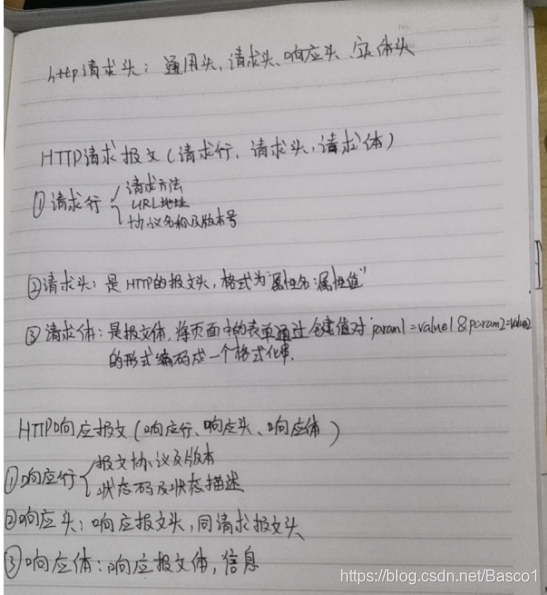 http请求头：通用头、请求头、响应头、实体头
HTTP请求报文（请求行、请求头、请求体）
①请求行
请求方法
URL地址
协议名称及版本号
②请求头：是HTTP的报文头，格式为"属性名：属性值"
③请求体：是报文体，将页面中的表单通过键值对param1=value1&param2=value2
的形式编码成一个格式化串.
HTTP响应报文（响应行、响应头、响应体）
①响应行
报文协议及版本
状态码及状态描述
②响应头：响应报文头，同请求报文头
③响应体：响应报文体，信息
https://blog.csdn.net/Basco1